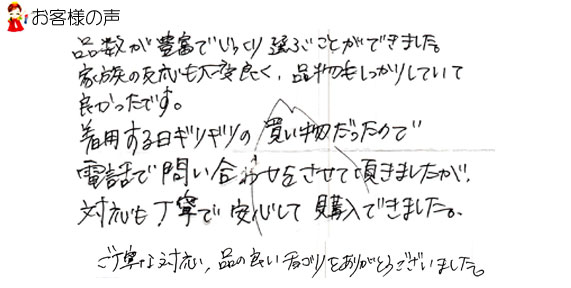 お客様の声
品数が豊富でじっくり選ぶことができました。
家族の反応も大変良く、品物もしっかりしていて
良かったです。
着用する日ギリギリの買い物だったので
電話で問い合わせをさせて頂きましたが、
対応も丁寧で安心して購入できました。
ご丁寧な対応、品の良い着ゴリをありがとうございました。